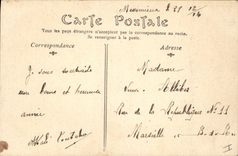 Messimieux 25 12/14
Carte Postale
Tous les pays étrangers n'acceptent pas la correspondance au recto.
Se renseigner à la poste.
Correspondance Adresse
Je vous souhaite
une bonne et heureuse
année
Madame
Veuve
Rue de la République N° 11
Marseille B-du-Rh